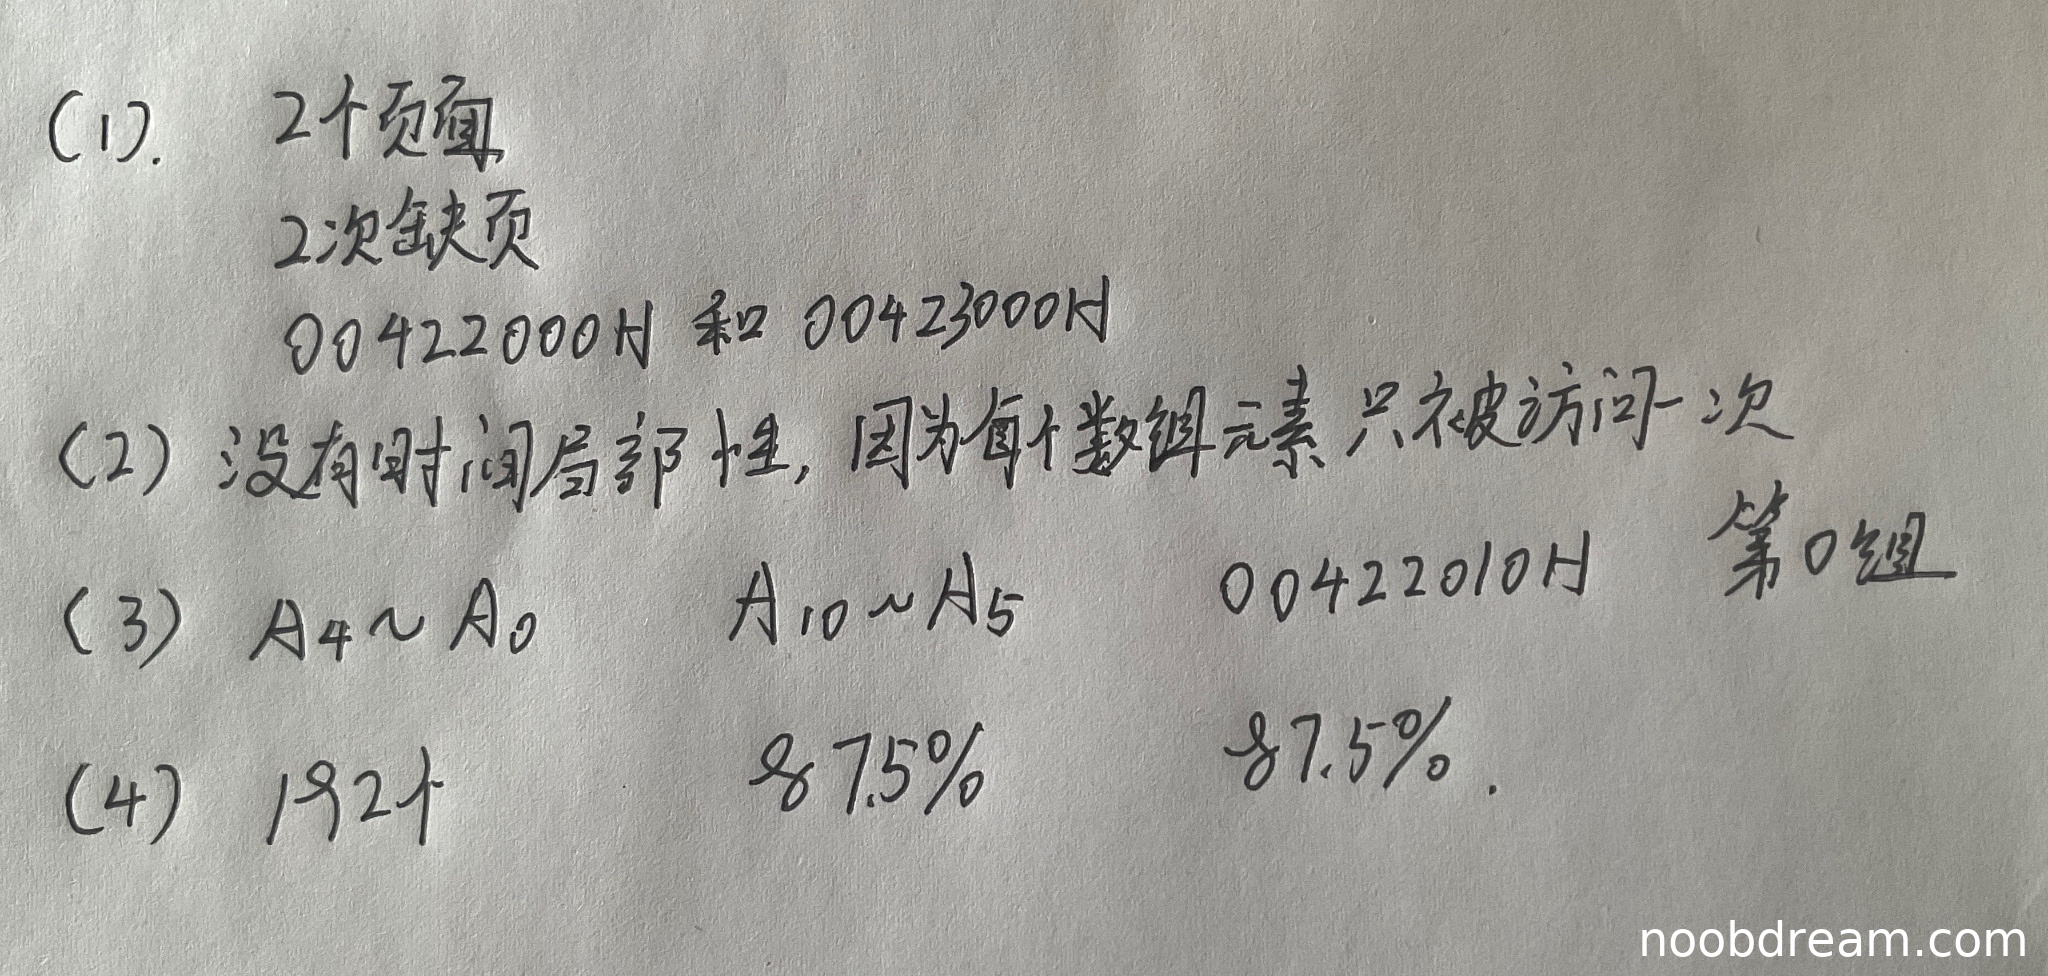 (1). 2个页面
2次缺页
00422000H 和 00423000H
(2) 没有时间局部性, 因为每个数组元素只被访问一次
(3) A4~A0 A10~A5 00422010H 第0组
(4) 192个 87.5% 87.5%.
noobdream.com